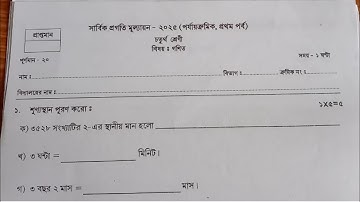 সার্বিক প্রগতি মূল্যায়ন - ২০২৫ (পর্যায়ক্রমিক, প্রথম পর্ব)
প্রাপ্তমান
চতুর্থ শ্রেণী
বিষয় ঃ গণিত
পূর্ণমান - ২০
সময় - ১ ঘন্টা
নাম ঃ বিভাগ ঃ ক্রমিক নং ঃ
বিদ্যালয়ের নাম ঃ
১. শূণ্যস্থান পূরণ করো ঃ ১X৫=৫
ক) ৩৫২৮ সংখ্যাটির ২-এর স্থানীয় মান হলো
খ) ৩ ঘন্টা = মিনিট।
গ) ৩ বছর ২ মাস = মাস।